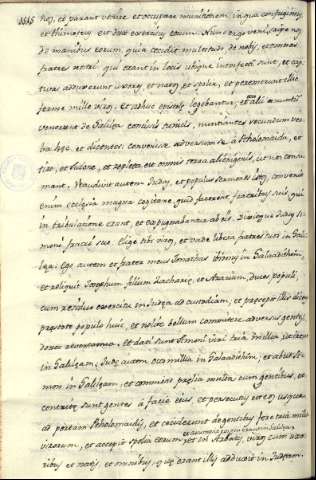 nos, et parant venire et occupare munitionem, in qua confugimus,
et Thimoteus est dux exercitus eorum. Nunc ergo veni, eripe nos
de manibus eorum, quia cecidit multitudo de nobis, et omnes
fratres nostri, qui erant in locis ubique interfecti sunt, et cap
tivas adduxerunt uxores, et natos et spolia, et peremerunt illic
ferme mille viros, et adhuc epistolę legebantur, et alij nuntij
venerunt de Galilea conscissis tunicis, nuntiantes secundum ver
ba hęc, et dicentes; convenisse adversum se à Ptholemaida, et
Tiro, et Sidone, et repleta est omnis terra alienigenis, ut nos consu
mant. Ut audivit autem Judas, et populus sermones istos, convenit
enim ecclesia magna cogitare, quid facerent fratribus suis, qui
in tribulatione erant, et expugnabantur ab eis. Dixitque Judas Si
moni fratri suo. Elige tibi viros, et vade libera fratres tuos in Gali
lęa; Ego autem et frater meus Jonathas ibimus in Galaaditim,
et reliquit Josephum filium Zacharię, et Azariam, duces populi
cum residuo exercitu in Judęa ad custodiam, et precepit illis dicens
pręestote populo huic, et nolite bellum committere adversus gentes,
donec revertamur, et dati sunt Simoni viri tria millia ut iret
in Galilęam, Judę autem octo millia in Galaaditim, et abijt Si
mon in Galilęam, et commisit pręlia multa cum gentibus, et
contritę sunt gentes à facie ejus, et persecutus est eos usque
ad portam Ptholemaidis, et ceciderunt de gentibus fere tria millia
virorum, et accepit spolia eorum, et in Arbatis, viros cum uxo
ribus et natis, et omnibus, quę erant illis adduxit in Judeam.